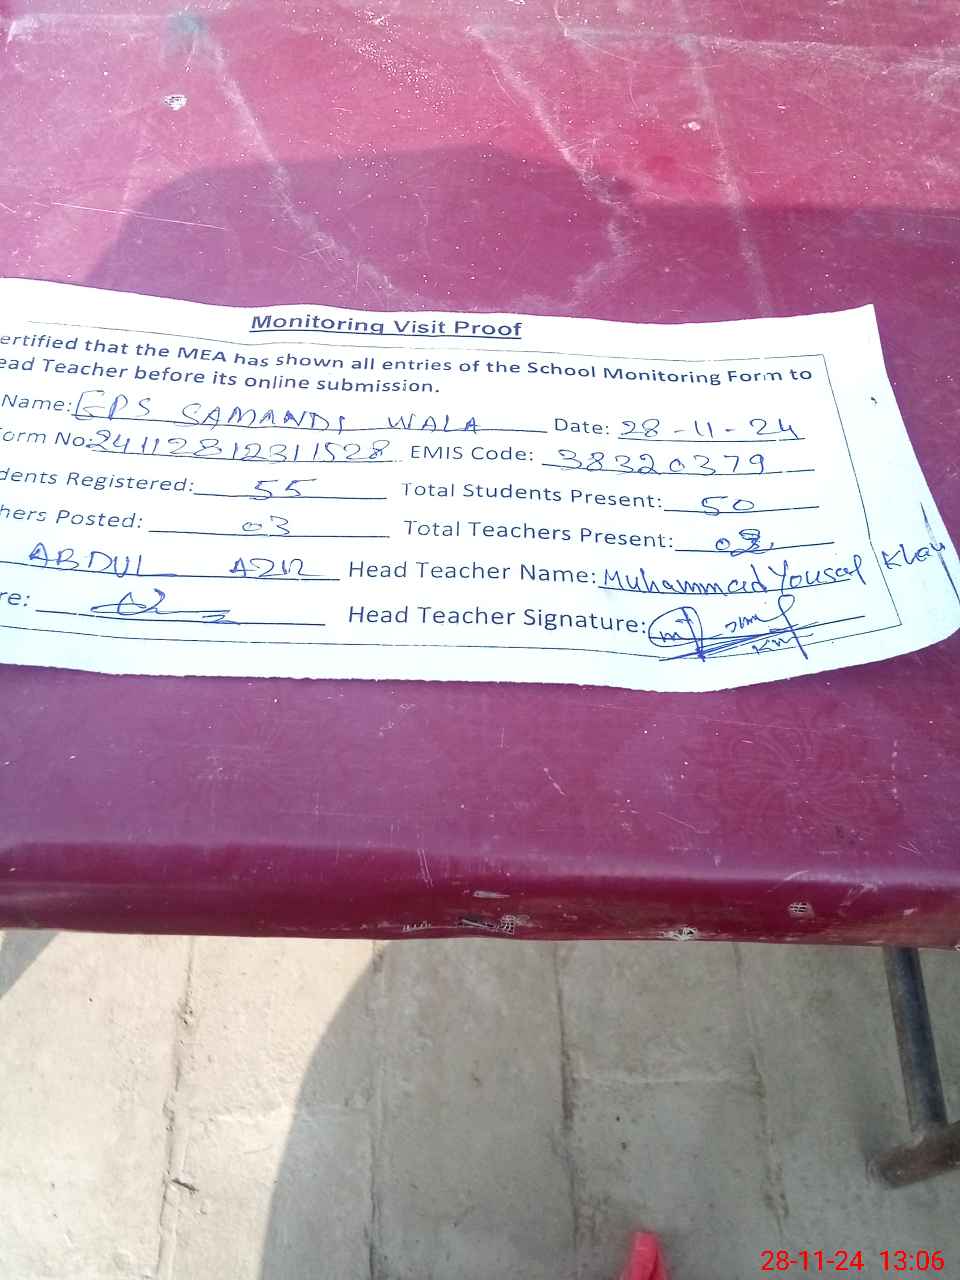 Monitoring Visit Proof
ertified that the MEA has shown all entries of the School Monitoring Form to
ead Teacher before its online submission.
Name: GPS SAMANDI WALA Date: 28-11-24
orm No: 24112812311528 EMIS Code: 38320379
dents Registered: 55 Total Students Present: 50
hers Posted: 03 Total Teachers Present:
ABDUL AZIZ Head Teacher Name: Muhammad Yousaf Khan
re: Head Teacher Signature:
28-11-24 13:06